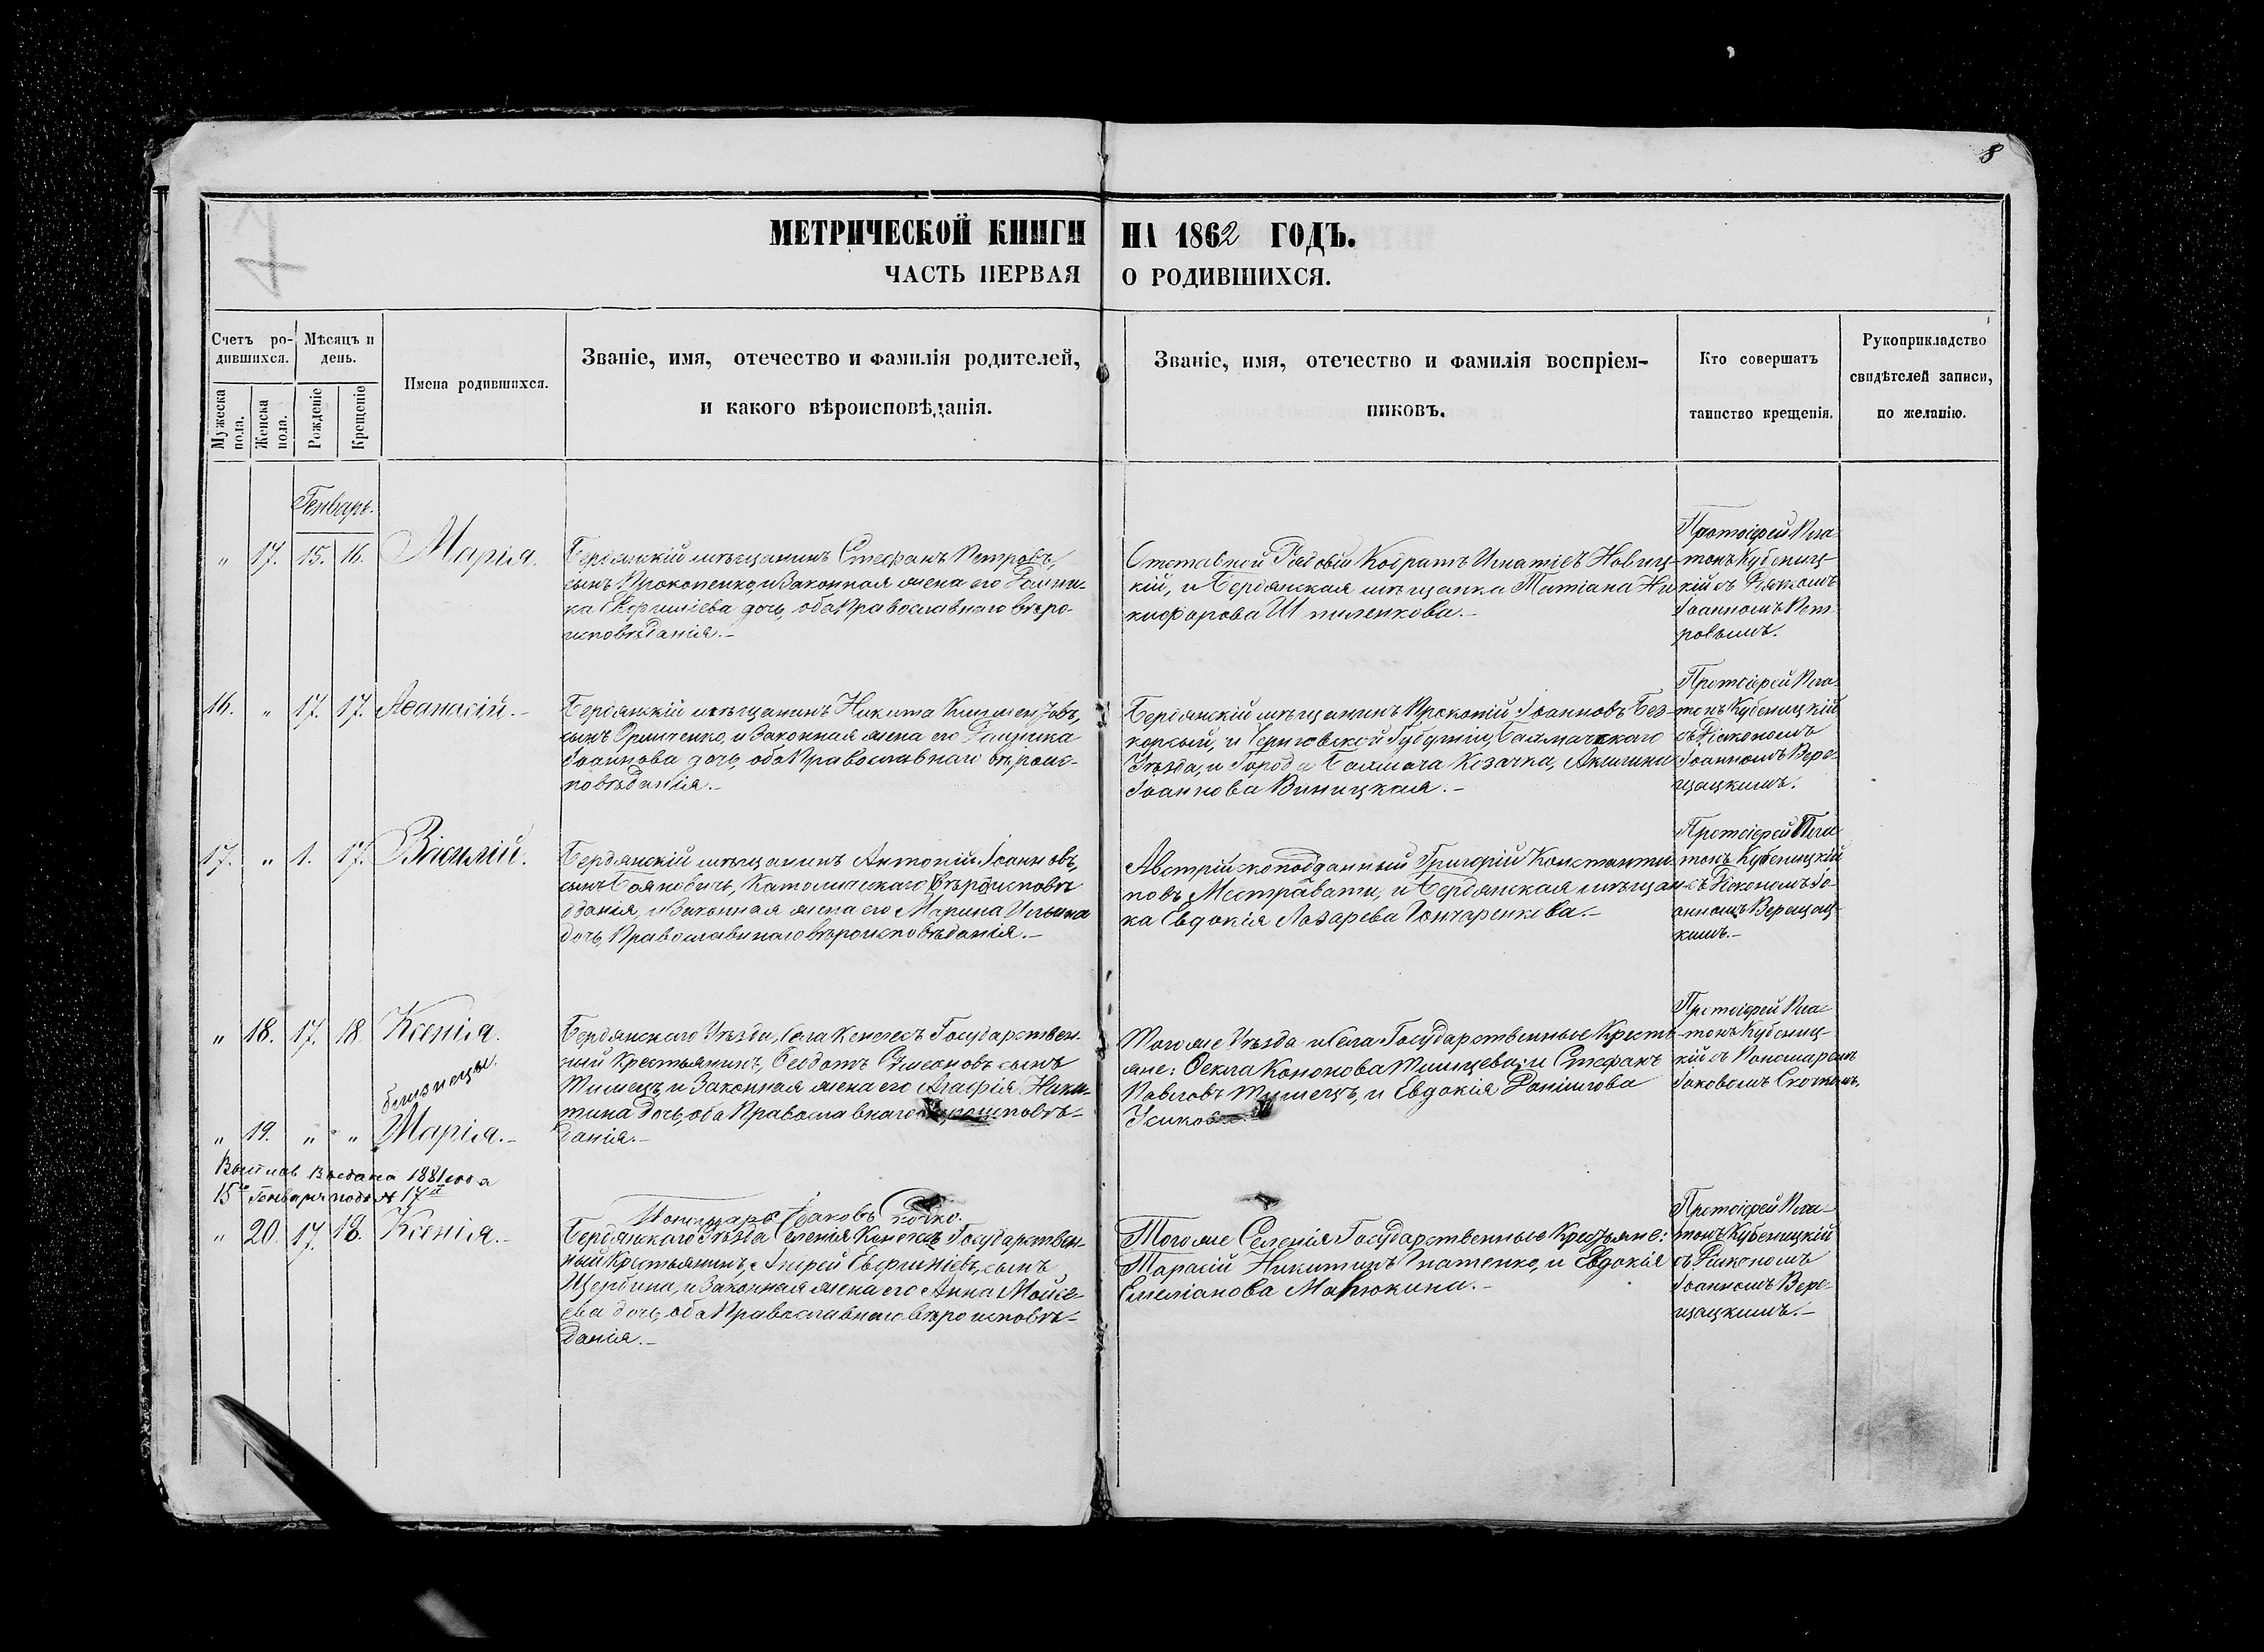 8
МЕТРИЧЕСКОЙ КНИГИ НА 1862 ГОДЪ.
ЧАСТЬ ПЕРВАЯ О РОДИВШИХСЯ.
Счетъ ро-
дившихся.
Мужеска
пола.
Женска
пола.
Мѣсяцъ и
день.
Рожденіе
Крещеніе
Имена родившихся.
Званіе, имя, отечество и фамилія родителей,
и какого вѣроисповѣданія.
Званіе, имя, отечество и фамилія воспріем-
никовъ.
Кто совершатъ
таинство крещенія.
Рукоприкладство
свидѣтелей записи,
по желанію.
Генварь.
„ 17. 15. 16. Марія.
Бердянскій мѣщанинъ Стефанъ Петровъ,
сынъ Прокопенко, и Законная жена его
дочь, оба Православнаго вѣро-
исповѣданія.-
Отставной Рядовой Кодратъ Игнатіевъ Новиц-
кій, и Бердянская мѣщанка Татіана Ни-
кифорова Шпиленкова.-
Протоіерей Пла-
тонъ Кубениц-
кій съ Діякономъ
Іоанномъ Пет-
ровымъ.
16. „ 17. 17. Аѳанасій.-
Бердянскій мѣщанинъ Никита
сынъ Гринченко, и Законная жена его
Іоаннова дочь, оба Православнаго вѣроис-
повѣданія.-
Бердянскій мѣщанинъ Прокопій Іоанновъ Без-
корсый, и Черниговской Губерніи,
Уѣзда, и Города Козачка,
Іоаннова Виницкая.-
Протоіерей Пла-
тонъ Кубеницкій
съ Діякономъ
Іоанномъ Вере-
щацкимъ.
17. „ 1. 17. Василій.
Бердянскій мѣщанинъ Антоній Іоанновъ,
сынъ Бояковичъ, Католическаго вѣроисповѣ
дданія, и Законная жена его Марина Ильина
дочь, Православнаго вѣроисповѣданія.-
Австрійскоподданный Григорій Константи-
новъ Местравати, и Бердянская мѣщан-
ка Евдокія Лазарева Гончаренкова.-
Протоіерей Пла-
тонъ Кубеницкій
съ Діякономъ Іо-
анномъ Верещац-
кимъ.-
„ 18. 17. 18. Ксенія.
близнецы.
„ 19. „ „ Марія.-
Бердянскаго Уѣзда, Села Кенгесъ Государствен-
ный Крестьянинъ, Ѳеодотъ Сумеоновъ сынъ
Тимецъ, и Законная жена его Агафія Ники-
тина дочь, оба Православнаго вѣроисповѣ-
данія.-
Того же Уѣзда и Села Государственные Кресть-
яне: Ѳекла Кононова Тимцева; и Стефанъ
Павловъ Тимецъ, и Евдокія Даніилова
Усикова.
Протоіерей Пла-
тонъ Кубениц-
кій съ Пономаремъ
Іаковомъ Скочкомъ.
Выпись Выдана 1881 года
15го Генваря подъ № 17й
Пономарь Іаковъ Скочко.
„ 20. 17. 18. Ксенія.-
Бердянскаго Уѣзда Селенія Кенгесъ Государствен-
ный Крестьянинъ, Андрей сынъ
Щербина, и Законная жена его Анна Моисе-
ева дочь, оба Православнаго вѣроисповѣ-
данія.-
Того же Селенія Государственные Крестьяне:
Тарасій Никитинъ Игнатенко, и Евдокія
Емеліанова Матюкина.-
Протоіерей Пла-
тонъ Кубеницкій
съ Діякономъ
Іоанномъ Вере-
щацкимъ.-